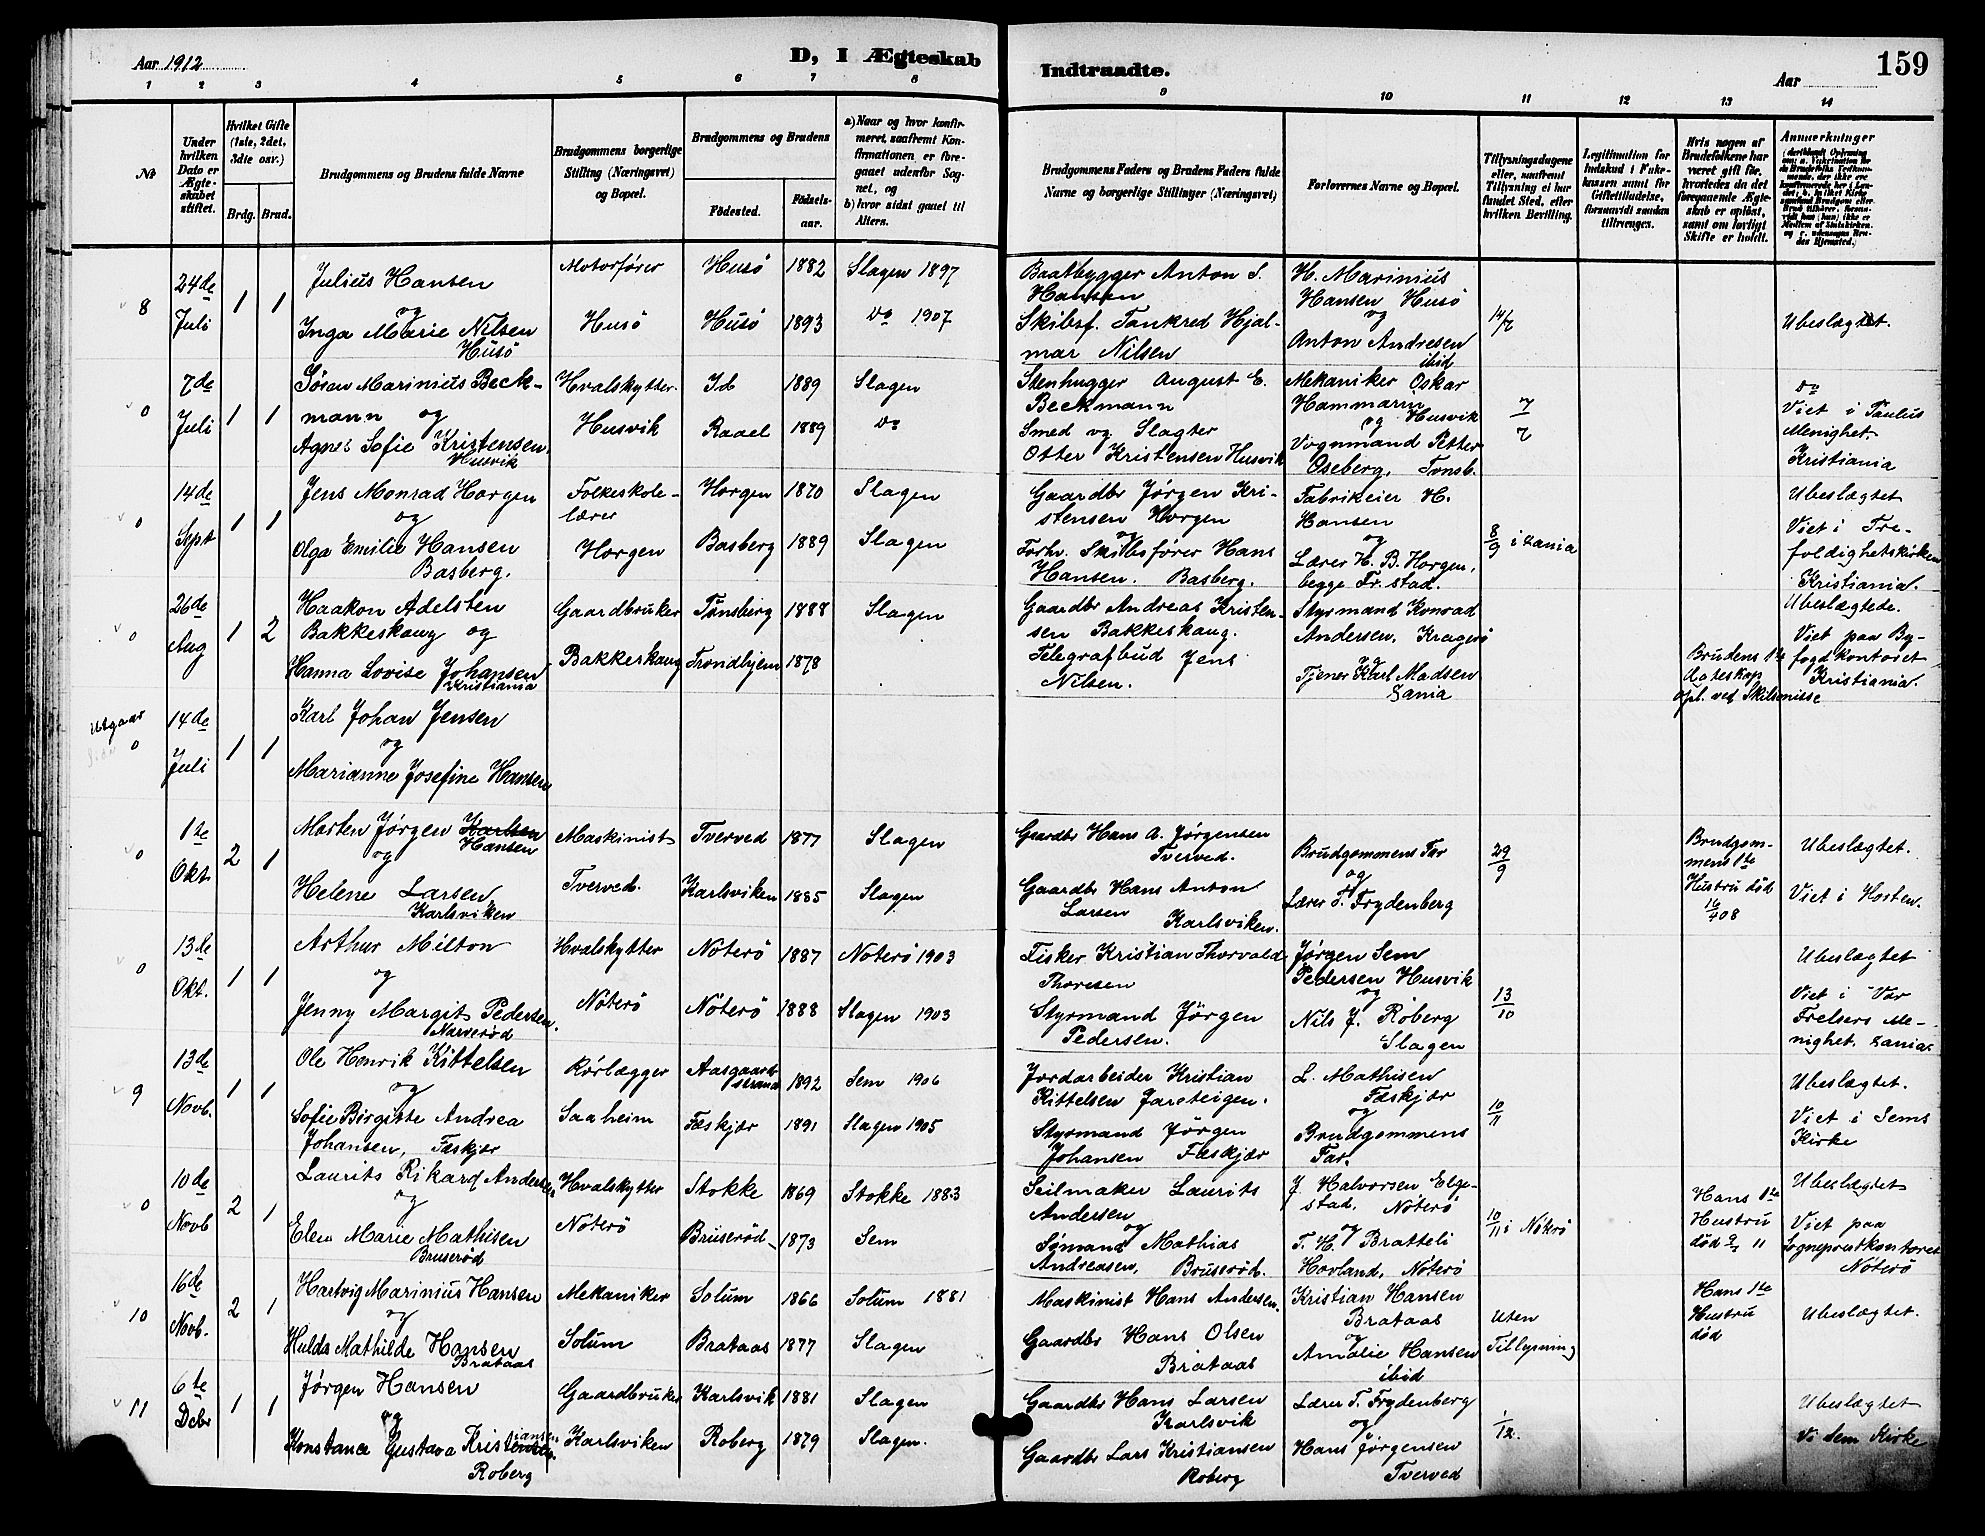 Aar 1912
D, I Ægteskab
Indtraadte.
Aar
159
1 2 3 4 5 6 7 8 9 10 11 12 13 14
No
Under hvilken Dato er Ægteskabet stiftet.
Hvilket Gifte (1ste, 2det, 3die osv.)
Brdg. Brud.
Brudgommens og Brudens fulde Navne
Brudgommens borgerlige Stilling (Næringsvei) og Bopæl.
Brudgommens og Brudens
Fødested.
Fødselsaar.
a) Naar og hvor konfirmeret, saafremt Konfirmationen er foregaaet udenfor Sognet, og
b) hvor sidst gaaet til Alters.
Brudgommens Faders og Brudens Faders fulde Navne og borgerlige Stillinger (Næringsvei)
Forlovernes Navne og Bopæl.
Tillysningsdagene eller, saafremt Tillysning ei har fundet Sted, efter hvilken Bevilling.
Legitimation for Indskud i Enkekassen samt for Giftetilladelse, forsaavidt saadan tiltrænges.
Hvis nogen af Brudefolkene har været gift før, hvorledes da det foregaaende Ægteskab er opløst, samt om lovligt Skifte er holdt.
Anmerkninger
8
24de Juli
1 1
Julius Hansen
og
Inga Marie Nilsen
Husö
Motorfører
Husö
Husö 1882
Husö 1893
Slagen 1897
do 1907
Baatbygger Anton S.
Hansen
Skibsf. Tankred Hjal-
mar Nilsen
H. Marinius
Hansen Husö
og
Anton Andresen
ibid
14/7
Ubeslægtet.
0
7de Juli
1 1
Søren Marinius Beck-
mann og
Agnes Sofie Kristensen
Husvik
Hvalskytter
Husvik
Id 1889
Raael 1889
Slagen
do
Stenhugger August E.
Beckmann
Smed og Slagter
Otter Kristensen Husvik
Mekaniker Oskar
Hammarn
og Husvik
Vognmand Petter
Oseberg, Tønsb.
7/7
do
Viet i Paulus
Menighet.
Kristiania
0
14de Sept
1 1
Jens Monrad Horgen
og
Olga Emilie Hansen
Basberg.
Folkeskole-
lærer
Horgen
Horgen 1870
Basberg 1889
Slagen
Slagen
Gaardbr Jørgen Kri-
stensen Horgen
og
Forhv. Skibsfører Hans
Hansen. Basberg.
Fabrikeier H.
Hansen
og
Lærer H. B. Horgen,
begge Fr.stad.
8/9 i Xania
Ubeslægtet
Viet i Tre-
foldighetskirken
Kristiania.
0
26de Aug
1 2
Haakon Adelsten
Bakkeskaug og
Hanna Lovise Johansen
Kristiania
Gaardbruker
Bakkeskaug
Tønsberg 1888
Trondhjem 1878
Slagen
Gaardbr Andreas Kristen-
sen Bakkeskaug.
Telegrafbud Jens
Nilsen.
Styrmand Konrad
Andersen, Kragerö
og
Tjener Karl Madsen
Xania
Brudens 1te
Ægteskap
opl. ved Skilsmisse
Ubeslægtede.
Viet paa By-
fogdkontoret
Kristiania.
Utgaar
0
14de Juli
1 1
Karl Johan Jensen
og
Marianne Josefine Hansen
0
1te Okt
2 1
Morten Jørgen Karlsen
Hansen
og
Helene Larsen
Karlsviken
Maskinist
Tverved.
Tverved 1877
Karlsviken 1885
Slagen
Slagen
Gaardbr Hans A. Jørgensen
Tverved.
Gaardbr Hans Anton
Larsen
Karlsviken.
Brudgommens Far
og
Lærer T. Frydenberg
29/9
Brudgom-
mens 1te
Hustru död
Ubeslægtet.
Viet i Horten.
0
13de Okt.
1 1
Arthur Milton
og
Jenny Margit Pedersen
Narverød
Hvalskytter
Nöterö
Nöterö 1887
Nöterö 1888
Nöterö 1903
Slagen 1903
Fisker Kristian Thorvald
Thoresen
Styrmand Jørgen
Pedersen.
Jørgen Sem
Pedersen Husvik
og
Nils J. Röberg
Slagen
13/10
Ubeslægtet
Viet i Vor
Frelsers Me-
nighet, Xania.
9
13de Novb.
1 1
Ole Henrik Kittelsen
og
Sofie Birgitte Andrea
Johansen, Fæskjær
Rörlægger
Saaheim
Aasgaard-
strand 1892
Fæskjær 1891
Sem 1906
Slagen 1905
Jordarbeider Kristian
Kittelsen Jareteigen.
Styrmand Jørgen
Johansen Fæskjær
L. Mathisen
Fæskjær
og
Brudgommens
Far.
10/11
Ubeslægtet.
Viet i Sems
Kirke
0
10de Novb
2 1
Laurits Rikard Andersen
og
Elen Marie Mathisen
Bruserød
Hvalskytter
Nöterö
Stokke 1869
Bruserød 1873
Stokke 1883
Sem
Seilmaker Laurits
Andersen
og
Sömand Mathias
Andreasen, Bruserød.
J. Halvorsen Elge-
stad, Nöterö
og
T. H. Bratteli
Horland, Nöterö
10/11 i Nöterö
Hans 1te
Hustru
död
Ubeslægtet
Viet paa
Sogneprestkontoret
Nöterö
10
16de Novb.
2 1
Hartvig Marinius Hansen
og
Hulda Mathilde Hansen
Brataas
Mekaniker
Solum
Solum 1866
Brataas 1877
Solum 1881
Slagen
Maskinist Hans Andersen.
Gaardbr Hans Olsen
Brataas
Kristian Hansen
Brataas
og
Amalie Hansen
ibid
Uten
Tillysning
Hans 1te
Hustru
död
Ubeslægtet.
11
6te Debr
1 1
Jørgen Hansen
og
Konstance Gustava Kristiansen
Roberg
Gaardbruker
Karlsviken
Karlsvik 1881
Roberg 1879
Slagen
Slagen.
Gaardbr Hans Larsen
Karlsvik
Gaardbr Lars Kristiansen
Roberg
Lærer T. Frydenberg
og
Hans Jørgensen
Tverved
1/12.
Ubeslægtet
Vi Sem Kirke